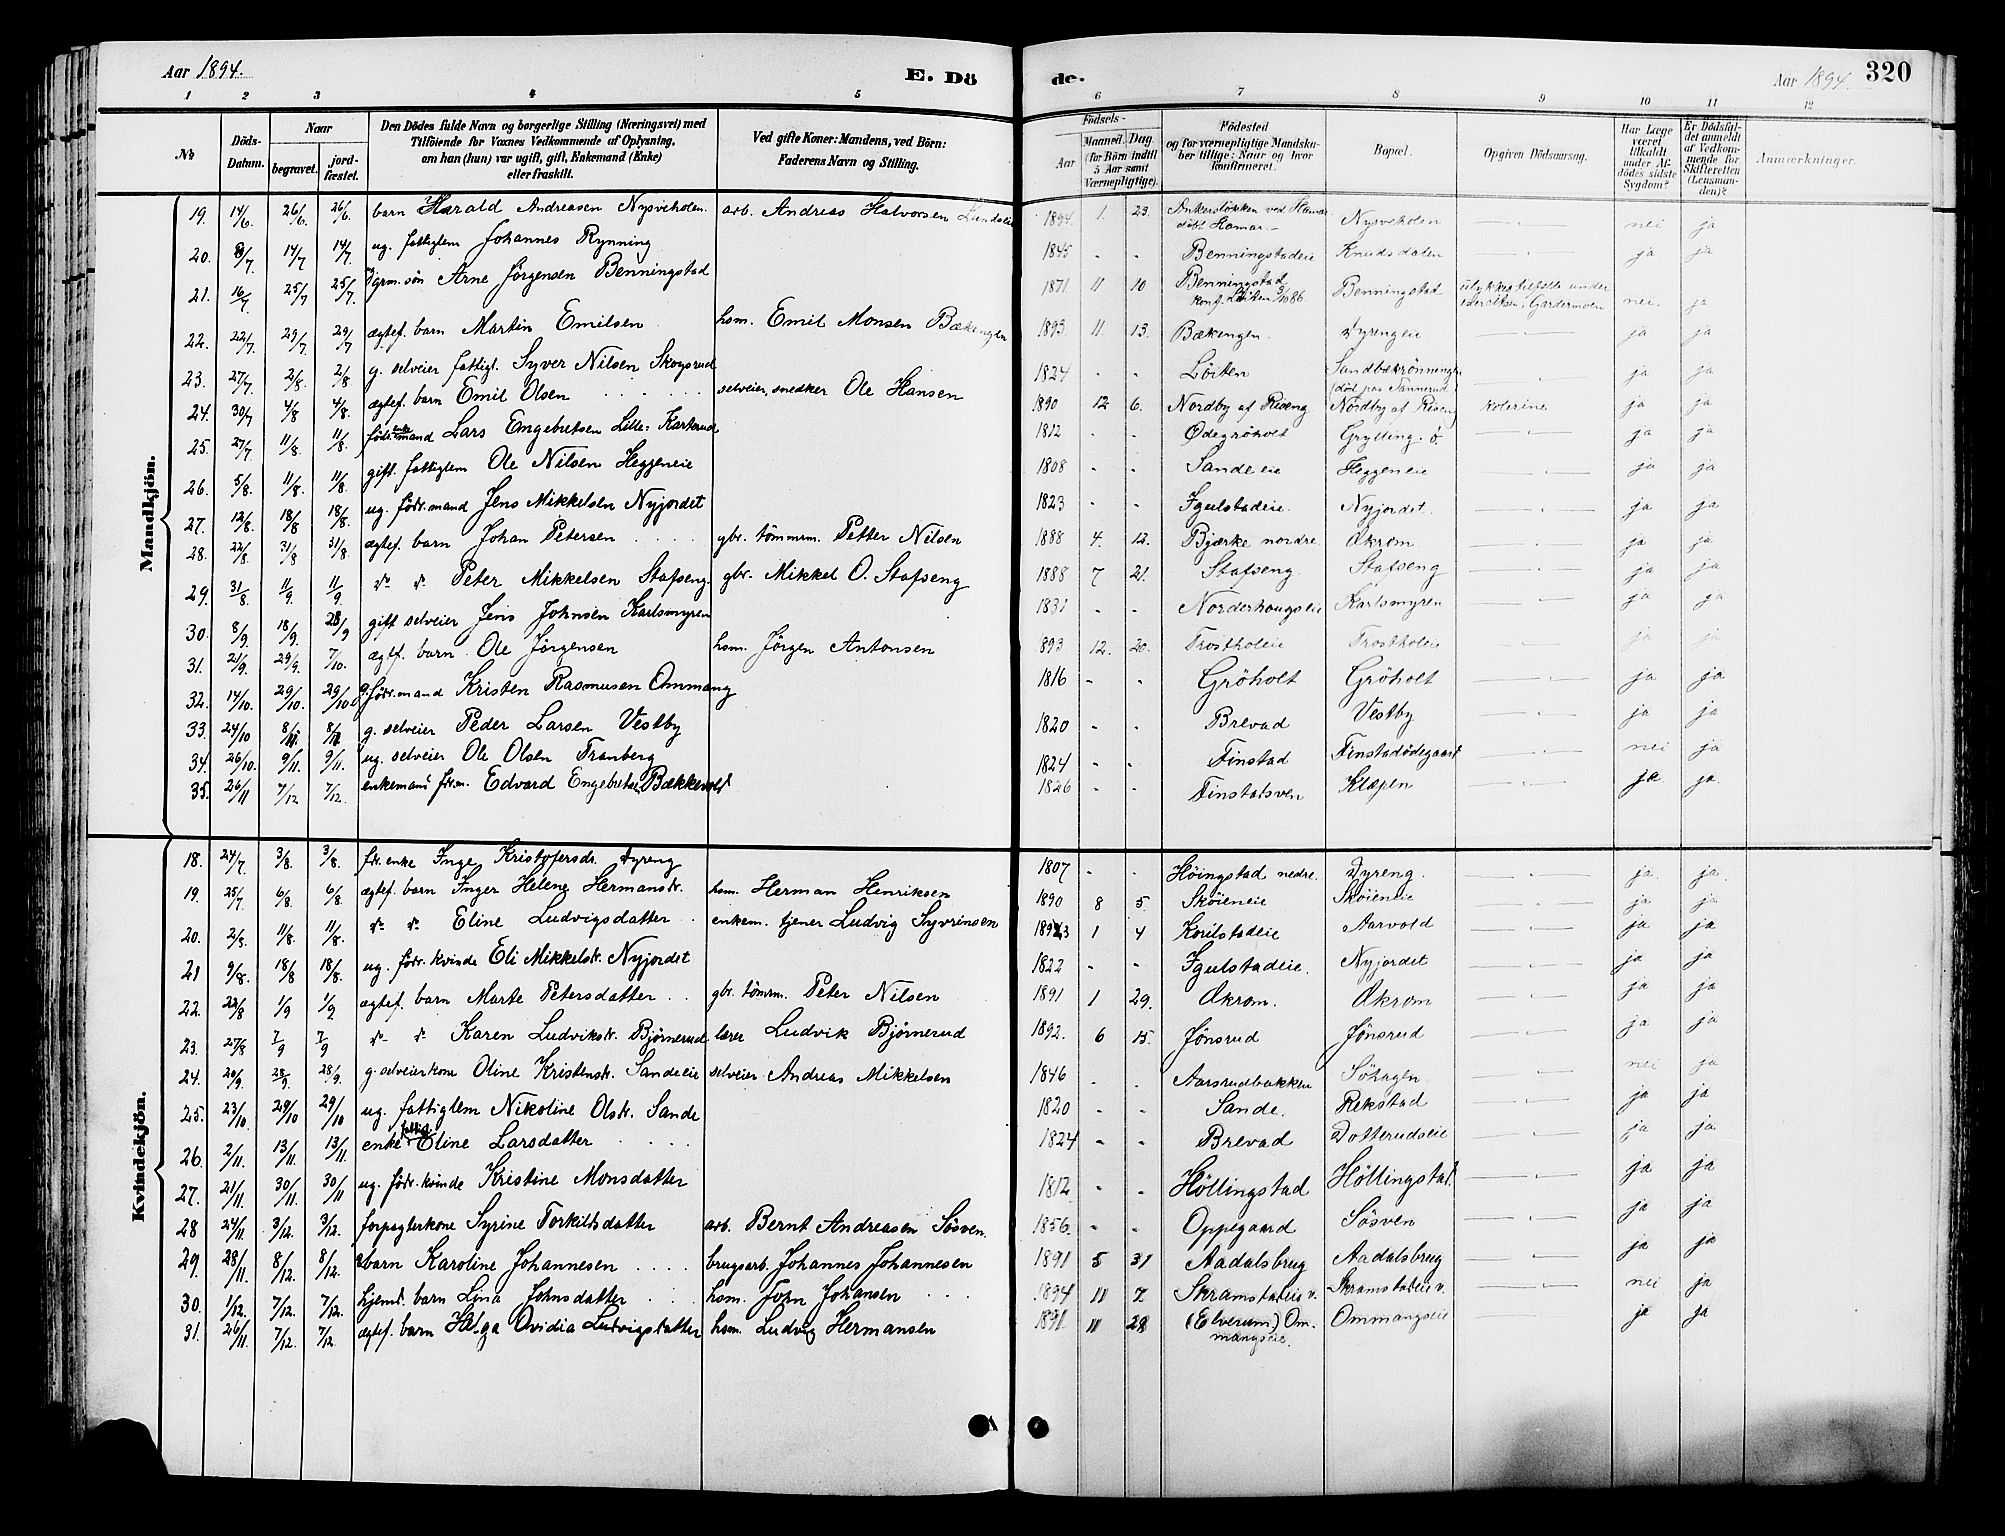 Aar 1894.
E. Dö
de.
Aar 1894
320
1 2 3 4 5 6 7 8 9 10 11 12
No
Döds-Datum.
Naar
begravet.
jord-fæstet.
Den Dödes fulde Navn og borgerlige Stilling (Næringsvei) med
Tilföiende for Voxnes Vedkommende af Oplysning,
om han (hun) var ugift, gift, Enkemand (Enke)
eller fraskilt.
Ved gifte Koner: Mandens, ved Börn:
Faderens Navn og Stilling.
Födsels-
Aar
Maaned. Dag.
(for Börn indtil 5 Aar samt Værnepligtige).
Födested
og for værnepligtige Mandska-
ber tillige: Naar og hvor
konfirmeret.
Bopæl.
Opgiven Dödsaarsag.
Har Læge været tilkaldt under Af-dödes sidste Sygdom?
Er Dödsfal-det anmeldt af Vedkom-mende for Skifteretten (Lensman-den)?
Anmærkninger.
Mandkjön.
19. 14/6. 26/6. 26/6. barn Harald Andreasen Nysveholen. arb. Andreas Halvorsen 1894. 1. 23. Ankerløkken ved Hamar. døbt Hamar.- Nysveholen nei ja
20. 8/7. 14/7 14/7. ug. fattiglem Johannes Rynning 1845 - - Benningstadeie Knudsdalen ja ja
21. 16/7 25/7 25/7. grm. søn Arne Jørgensen Benningstad 1871 11 10 Benningstad konf. Løiten 86. Benningstad ulykkestilfælde under exercitsen, Gardermoen nei. ja
22. 22/7. 29/7. 29/7 ægtef. barn Martin Emilsen hsm. Emil Monsen Bækengen 1893. 11. 13. Bækengen. Dyrengeie ja ja
23. 27/7. 2/8. 2/8 g. selveier fattigl. Syver Nilsen Skogsrud 1824 - - Löiten Sandbækrönningen (död paa Tannerud) ja ja
24. 30/7 4/8 4/8. ægtef. barn Emil Olsen selveier, snedker Ole Hansen 1890 12 6. Nordby af Riseng Nordby af Riseng kolerine ja ja
25. 27/7 11/8 11/8. föder. enkemand Lars Engebretsen Lille-Karterud 1812 - - Ødegröholt Grylling. ö ja ja
26. 5/8. 11/8. 11/8. gift. fattiglem Ole Nilsen Heggeneie 1808 - - Sandeeie Heggeneie ja ja
27. 12/8. 18/8 18/8. ug. födr. mand Jens Mikkelsen Nyjordet 1823 - - Igulstadeie. Nyjordet. ja ja
28. 22/8. 31/8 31/8. ægtef. barn Johan Petersen gbr. tömmrm. Petter Nilsen 1888 4. 12. Bjærke nordre Økrom ja ja
29. 31/8. 11/9. 11/9. do do Peter Mikkelsen Stafseng. gbr. Mikkel O. Stafseng 1888 7 21. Stafseng. Stafseng ja ja
30. 8/9. 18/9. 28/9 gift selveier Jens Johnsen Karlsmyren 1831 - - Norderhougseie Karlsmyren ja ja
31. 21/9. 29/9. 7/10. ægtf. barn Ole Jörgensen hsm. Jörgen Antonsen 893 12. 20. Trostholeie Trostholeie ja ja
32. 14/10. 29/10. 29/10 g. födr. mand Kristen Rasmusen Ommang 1816 - - Gröholt Gröholt ja ja
33. 24/10 8/11. 8/11 g. selveier Peder Larsen Vestby 1820 - - Brevad Vestby ja ja
34. 26/10. 9/11. 9/11. ug. selveier Ole Olsen Tranberg 1824 - - Finstad Finstadödegaard nei ja
35. 26/11 7/12 7/12. enkemand födr. Edvard Engebretsen Bækkevold 1826 - - Finstadsven Klæpen ja ja.
Kvindekjön.
18. 24/7. 3/8. 3/8. fdr. enke Inge Kristofersdr. Dyreng 1807 - - Höingstad nedre. Dyreng. ja. ja.
19. 25/7 6/8. 6/8. ægtef. barn Inger Helene Hermansdr. hsm. Herman Henriksen 1890 8 5. Sköieneie Sköieneie ja. ja
20. 2/8. 11/8. 11/8. do do Eline Ludvigsdatter enkem. tjener Ludvig Syvrinsen 1893 1 4 Koilstadeie Aarvold ja ja
21 9/8. 18/8 18/8. ug. födr. kvinde Eli Mikkelsdr. Nyjordet 1822 - - Igulstadeie. Nyjordet ja ja
22. 22/8 1/9 1/9. ægtef. barn Marte Petersdatter gbr. tömrm. Peter Nilsen 1891 1 29. Økrom. Økrom ja ja
23. 27/8 7/9 7/9 do do Karen Ludviksdr. Björnerud lærer Ludvik Bjørnerud 1892. 6 15. Jønsrud Jønsrud ja ja
24. 20/9. 28/9. 28/9. g. selveierkone Oline Kristensdr. Sandeeie selveier Andreas Mikkelsen 1846 - - Aarsrudbakken Söhagen nei ja
25. 23/10. 29/10 29/10 ug. fattiglem Nikoline Olsdr. Sande 1820 - - Sande. Rekstad ja ja
26. 2/11. 13/11 13/11 enke fattig Eline Larsdatter 1824 - - Brevad Dotterudseie ja ja
27. 21/11. 30/11. 30/11 ug. födr. kvinde Kristine Monsdatter 1812 - - Höllingstad Höllingstad. ja ja
28 24/11. 3/12. 3/12. forpagterkone Syrine Torkildsdatter arb. Bernt Andreasen Sösven. 1856. - - Oppegaard Sösven ja ja
29. 28/11. 8/12. 8/12. barn Karoline Johannesen brugsarb. Johannes Johannesen 1891 5 31 Aadalsbrug Aadalsbrug ja ja
30. 1/12. 7/12. 7/12. hjemd. barn Lina Johnsdatter hsm. John Johansen 1894 11 7. Skramstadeie v. Skramstadeie v. nei ja
31. 26/11 7/12. 7/12. ægtef. barn Helga Ovidia Ludvigsdatter hsm. Ludvig Hermansen 1891. 11 28 (Elverum) Ommangseie. Ommangseie ja ja